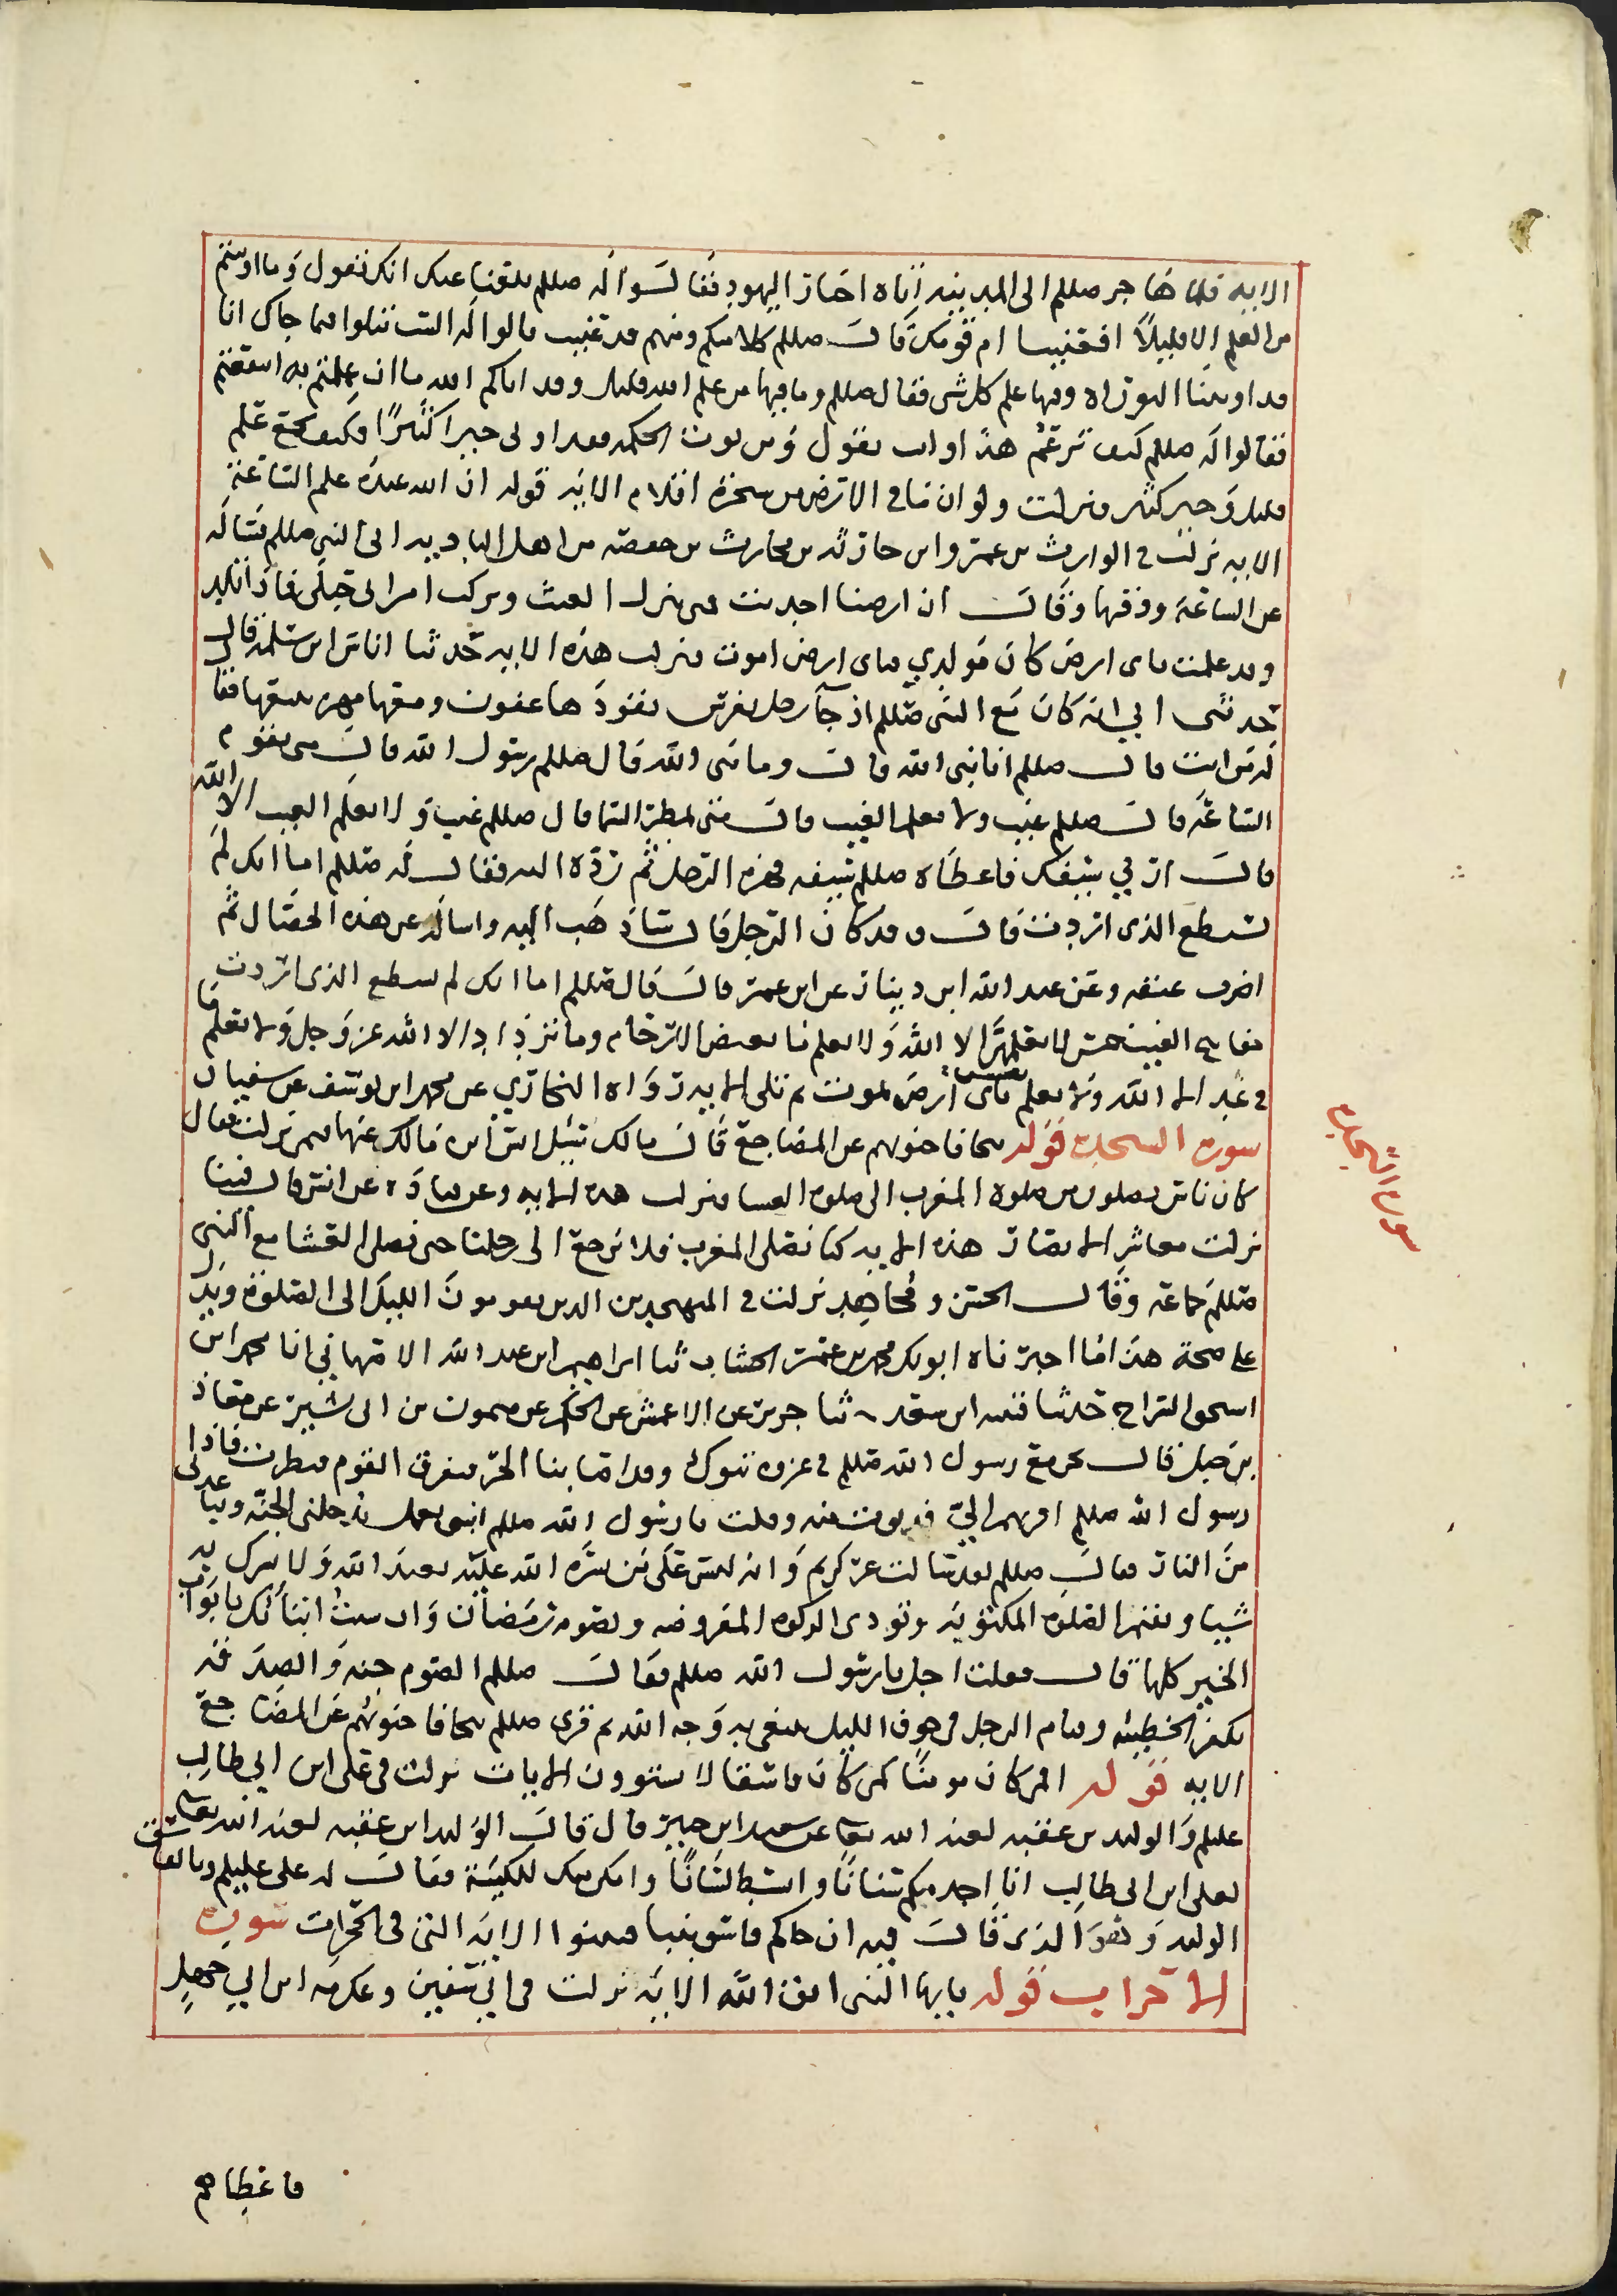 الايه فلما هاجر صللم الى المدينه اتاه احبار اليهود فقالوا له صللم بلغنا عنك انك تقول وما اوتيتم
من العلم الا قليلا افعنيتنا ام قومك قال صللم كلا منكم ومنهم قد عنيت قالوا له الست تتلوا فيما جاك انا
قد اوتينا التوراه وفيها علم كل شى فقال صللم وما فيها من علم الله قليل وقد اتاكم الله ما ان عملتم به انتفعتم
فقالوا له صللم كيف تزعم هذا وانت تقول ومن يوت الحكمه فقد اوتى خيرا كثيرا فكيف يجتمع علم
قليل وخير كثير فنزلت ولو ان ما فى الارض من شجره اقلام الايه قوله ان الله عنده علم الساعة
الايه نزلت فى الوارث بن عمرو ابن حارثه بن محارب بن حفصه من اهل الباديه اتى النبى صللم فساله
عن الساعة ووقتها وقال ان ارضنا اجدبت متى ينزل الغيث وتركت امراتى حبلى فماذا تلد
وقد علمت باى ارض كان مولدي فباى ارض اموت فنزلت هذه الايه حدثنا اناس ابن سلمه قال
حدثنى ابي انه كان مع النبى صللم اذ جآ رجل بفرس يقودها عقوق ومعها مهره يتبعها فقا
له من انت قال صللم انا نبى الله قال وما نبى الله قال صللم رسول الله قال متى تقوم
الساعة قال صللم غيب ولا يعلم الغيب قال متى تمطر السما قال صللم غيب ولا يعلم الغيب الا الله
قال ارني سيفك فاعطاه صللم سيفه فهزه الرجل ثم رده اليه فقال له صللم اما انك لم
تستطع الذى اردت قال وقد كان الرجل قال ساذهب اليه واساله عن هذه الخصال ثم
اضرب عنقه وعن عبد الله ابن دينار عن ابن عمر قال قال صللم اما انك لم تستطع الذى اردت
مفاتيح الغيب خمس لا يعلمها الا الله ولا يعلم ما تغيض الارحام وما تزداد الا الله عز وجل ولا يعلم ما
فى غد الا الله ولا يعلم نفس باى ارض تموت ثم تلى الايه رواه البخاري عن محمد ابن يوسف عن سفيان
سورة السجده قوله تتجافا جنوبهم عن المضاجع قال مالك سئل انس ابن مالك عنها فيمن نزلت فقال
كان ناس يصلون من صلوه المغرب الى صلوه العشا فنزلت هذه الايه وعن قتاده عن انس قال فينا
نزلت معاشر الانصار هذه الايه كنا نصلى المغرب فلا نرجع الى رحلنا حتى نصلى العشا مع النبى
صللم جماعه وقال الحسن ومجاهد نزلت فى المتهجدين الذين يقومون الليل الى الصلوة ويدل
على صحة هذا ما اخبرناه ابو بكر محمد بن عمر الخشاب ثنا ابراهيم ابن عبد الله الاصفهاني انا محمد ابن
اسحق السراج حدثنا قتيبه ابن سعد ثنا جرير عن الاعمش عن الحكم عن ميمون بن ابى شبيب عن معاذ
بن جبل قال نحن مع رسول الله صللم فى غزوه تبوك وقد اصابنا الحر فتفرق القوم فنظرت فاذا
رسول الله صللم اقربهم الي فدنوت منه وقلت يا رسول الله صللم انبنى بعمل يدخلنى الجنه ويباعدنى
من النار فقال صللم لقد سالت عن كريم وانه ليس على من يسره الله عليه تعبد الله ولا تشرك به
شيئا وتقيم الصلوه المكتوبه وتودى الزكوه المفروضه وتصوم رمضان وان شئت انبأتك بابواب
الخير كلها قال فقلت اجل يا رسول الله صللم فقال صللم الصوم جنه والصدقه
تكفر الخطيئه وقيام الرجل فى جوف الليل يبتغى به وجه الله ثم قرى صللم تتجافا جنوبهم عن المضاجع
الايه قوله افمن كان مومنا كمن كان فاسقا لا يستوون الايات نزلت فى على ابن ابي طالب
عليلم والوليد بن عقبه لعنه الله تعا عن سعيد ابن جبير قال قال الوليد ابن عقبه لعنه الله تعا
لعلى ابن ابى طالب انا احد منكم سنانا وابسط لسانا واملى منك للكتيبة فقال له على عليلم وبالفاسق
الوليد وهو الذى قال فيه ان جاكم فاسق بنبا فتبينوا الايه التى فى الحجرات سورة
الاحزاب قوله يا ايها النبى اتق الله الايه نزلت فى ابي سفين وعكرمه ابن ابي جهل
سورة السجده
فاعطاهم